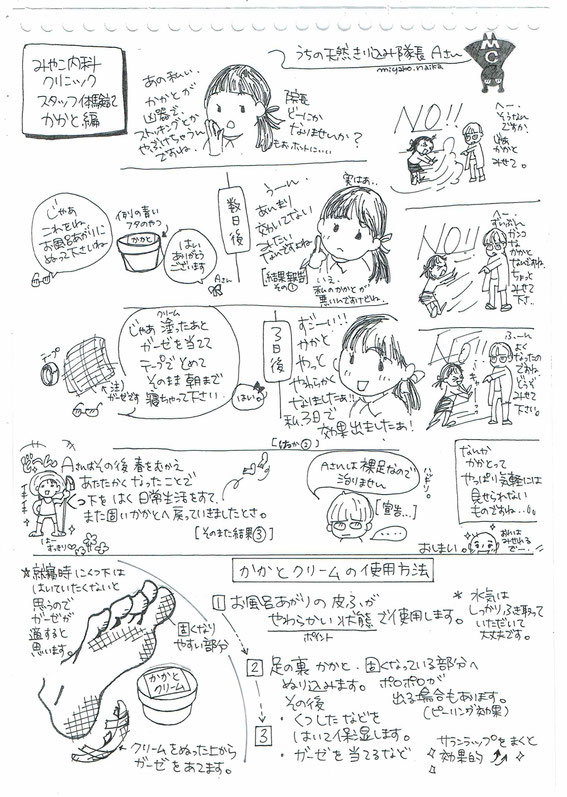 みやこ内科
クリニック
スタッフ体験記
かかと編
うちの天然きり込み隊長 Aさん
miyako.naika
MC
あの私い、
かかとが
凶器で、
ストッキングとか
やぶけちゃうん
ですよね。
院長
どーにか
なりませんか?
もぉ、ホントに‥‥
NO!!
へー、
そうなん
ですか、
じゃぁ
かかと
みせて。
じゃあ
これをね、
お風呂あがりに
ぬって下さいね
例の青い
フタのやつ
かかと
はい
ありがとう
ございます
Aさん
数日後
うーん、
あんまり
効いてない
みたい
なんですよね
実はぁ、
[結果報告
その①]
いえ、
私のかかとが
悪いんですけどね、
NO!!
へー、
ずいぶん
ガンコ
な
かかと
なんですね、
ちょっと
みせて
下さい
テープ
クリーム
じゃあ 塗ったあと
ガーゼを当てて
テープでとめて
そのまま 朝まで
寝ちゃって下さい。
注)
ガーゼです
はい。
3日後
すごーい!!!
かかと
やっと
やわらかく
なりましたぁ!!
私、3日で
効果出ましたぁ!
ふーん
よく
なったの
ですね、
どうぞ
みせて
下さい。
Aさんはその後 春をむかえ
あたたかくなったことで
くつ下をはく日常生活をすて、
また固いかかとへ戻っていきましたとさ。
[そのまた結果③]
はー
すっきり
Aさんは裸足なので
治りません
[宣告...]
なんか
かかとって
やっぱり気軽には
見せられない
ものですね‥‥
おしまい。
おれは
みせれる
でー‥
かかとクリームの使用方法
*就寝時にくつ下は
はいていたくないと
思うので
ガーゼが
適すると
思います。
固くなり
やすい部分
かかと
クリーム
クリームをぬった上から
ガーゼをあてます。
1 お風呂あがりの皮ふが
やわらかい状態で使用します。
ポイント
*水気は
しっかりふき取って
いただいて
大丈夫です。
2 足の裏 かかと・固くなっている部分へ
ぬり込みます。ポロポロが
出る場合もあります。
(ピーリング効果)
その後
3 ・くつしたなどを
はいて保湿します。
・ガーゼを当てるなど
サランラップをまくと
効果的